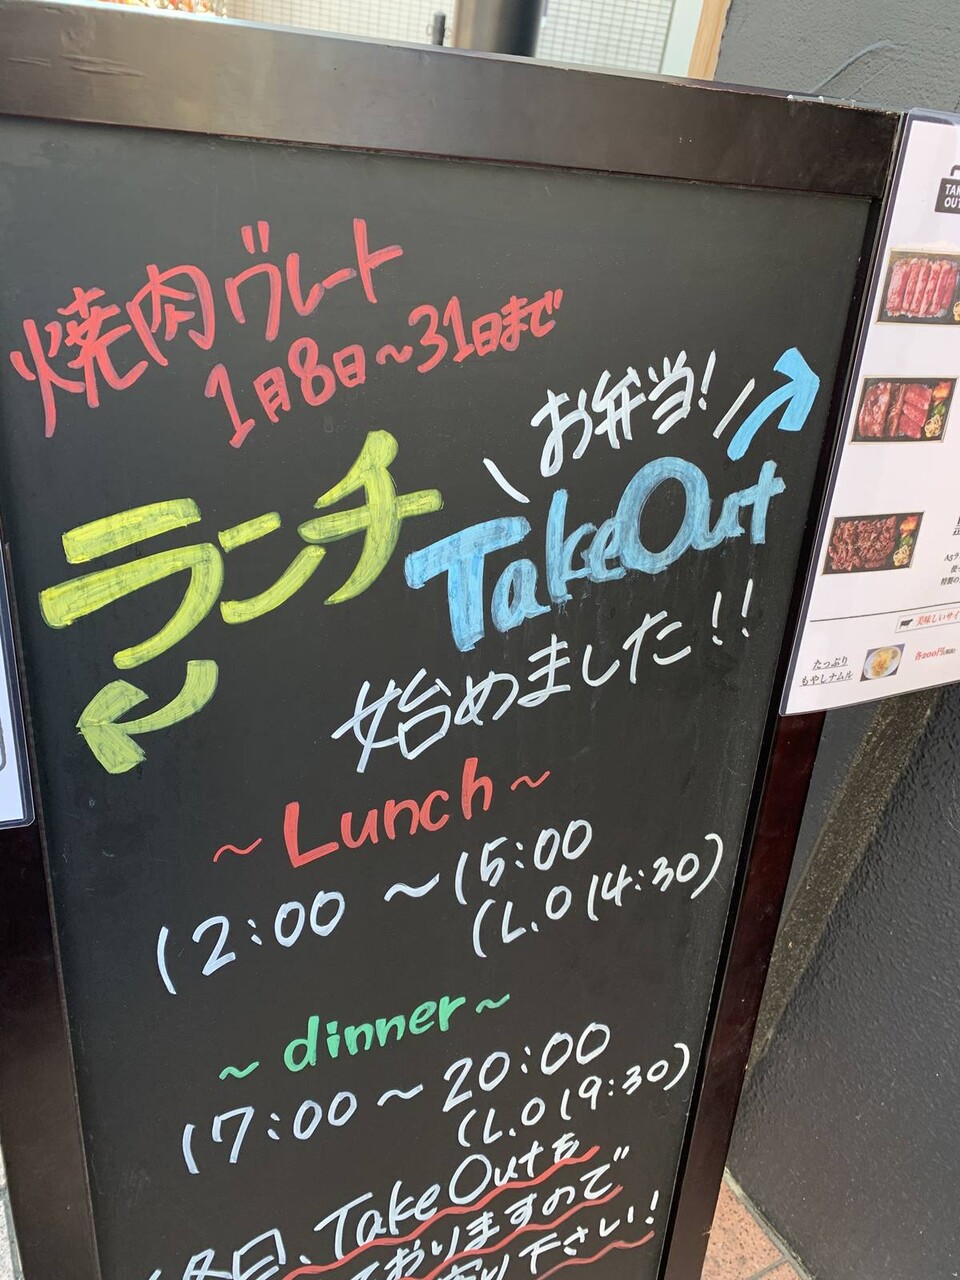 焼肉ヴレート
1月8日～31日まで
お弁当!
ランチ
TakeOut
始めました!!
～Lunch～
12:00～15:00
(L.O 14:30)
～dinner～
17:00～20:00
(L.O 19:30)
終日、TakeOutを
おりますので
下さい!
TAK
OUT
美味しいサイ
たっぷり
もやしナムル
各200円(税抜)